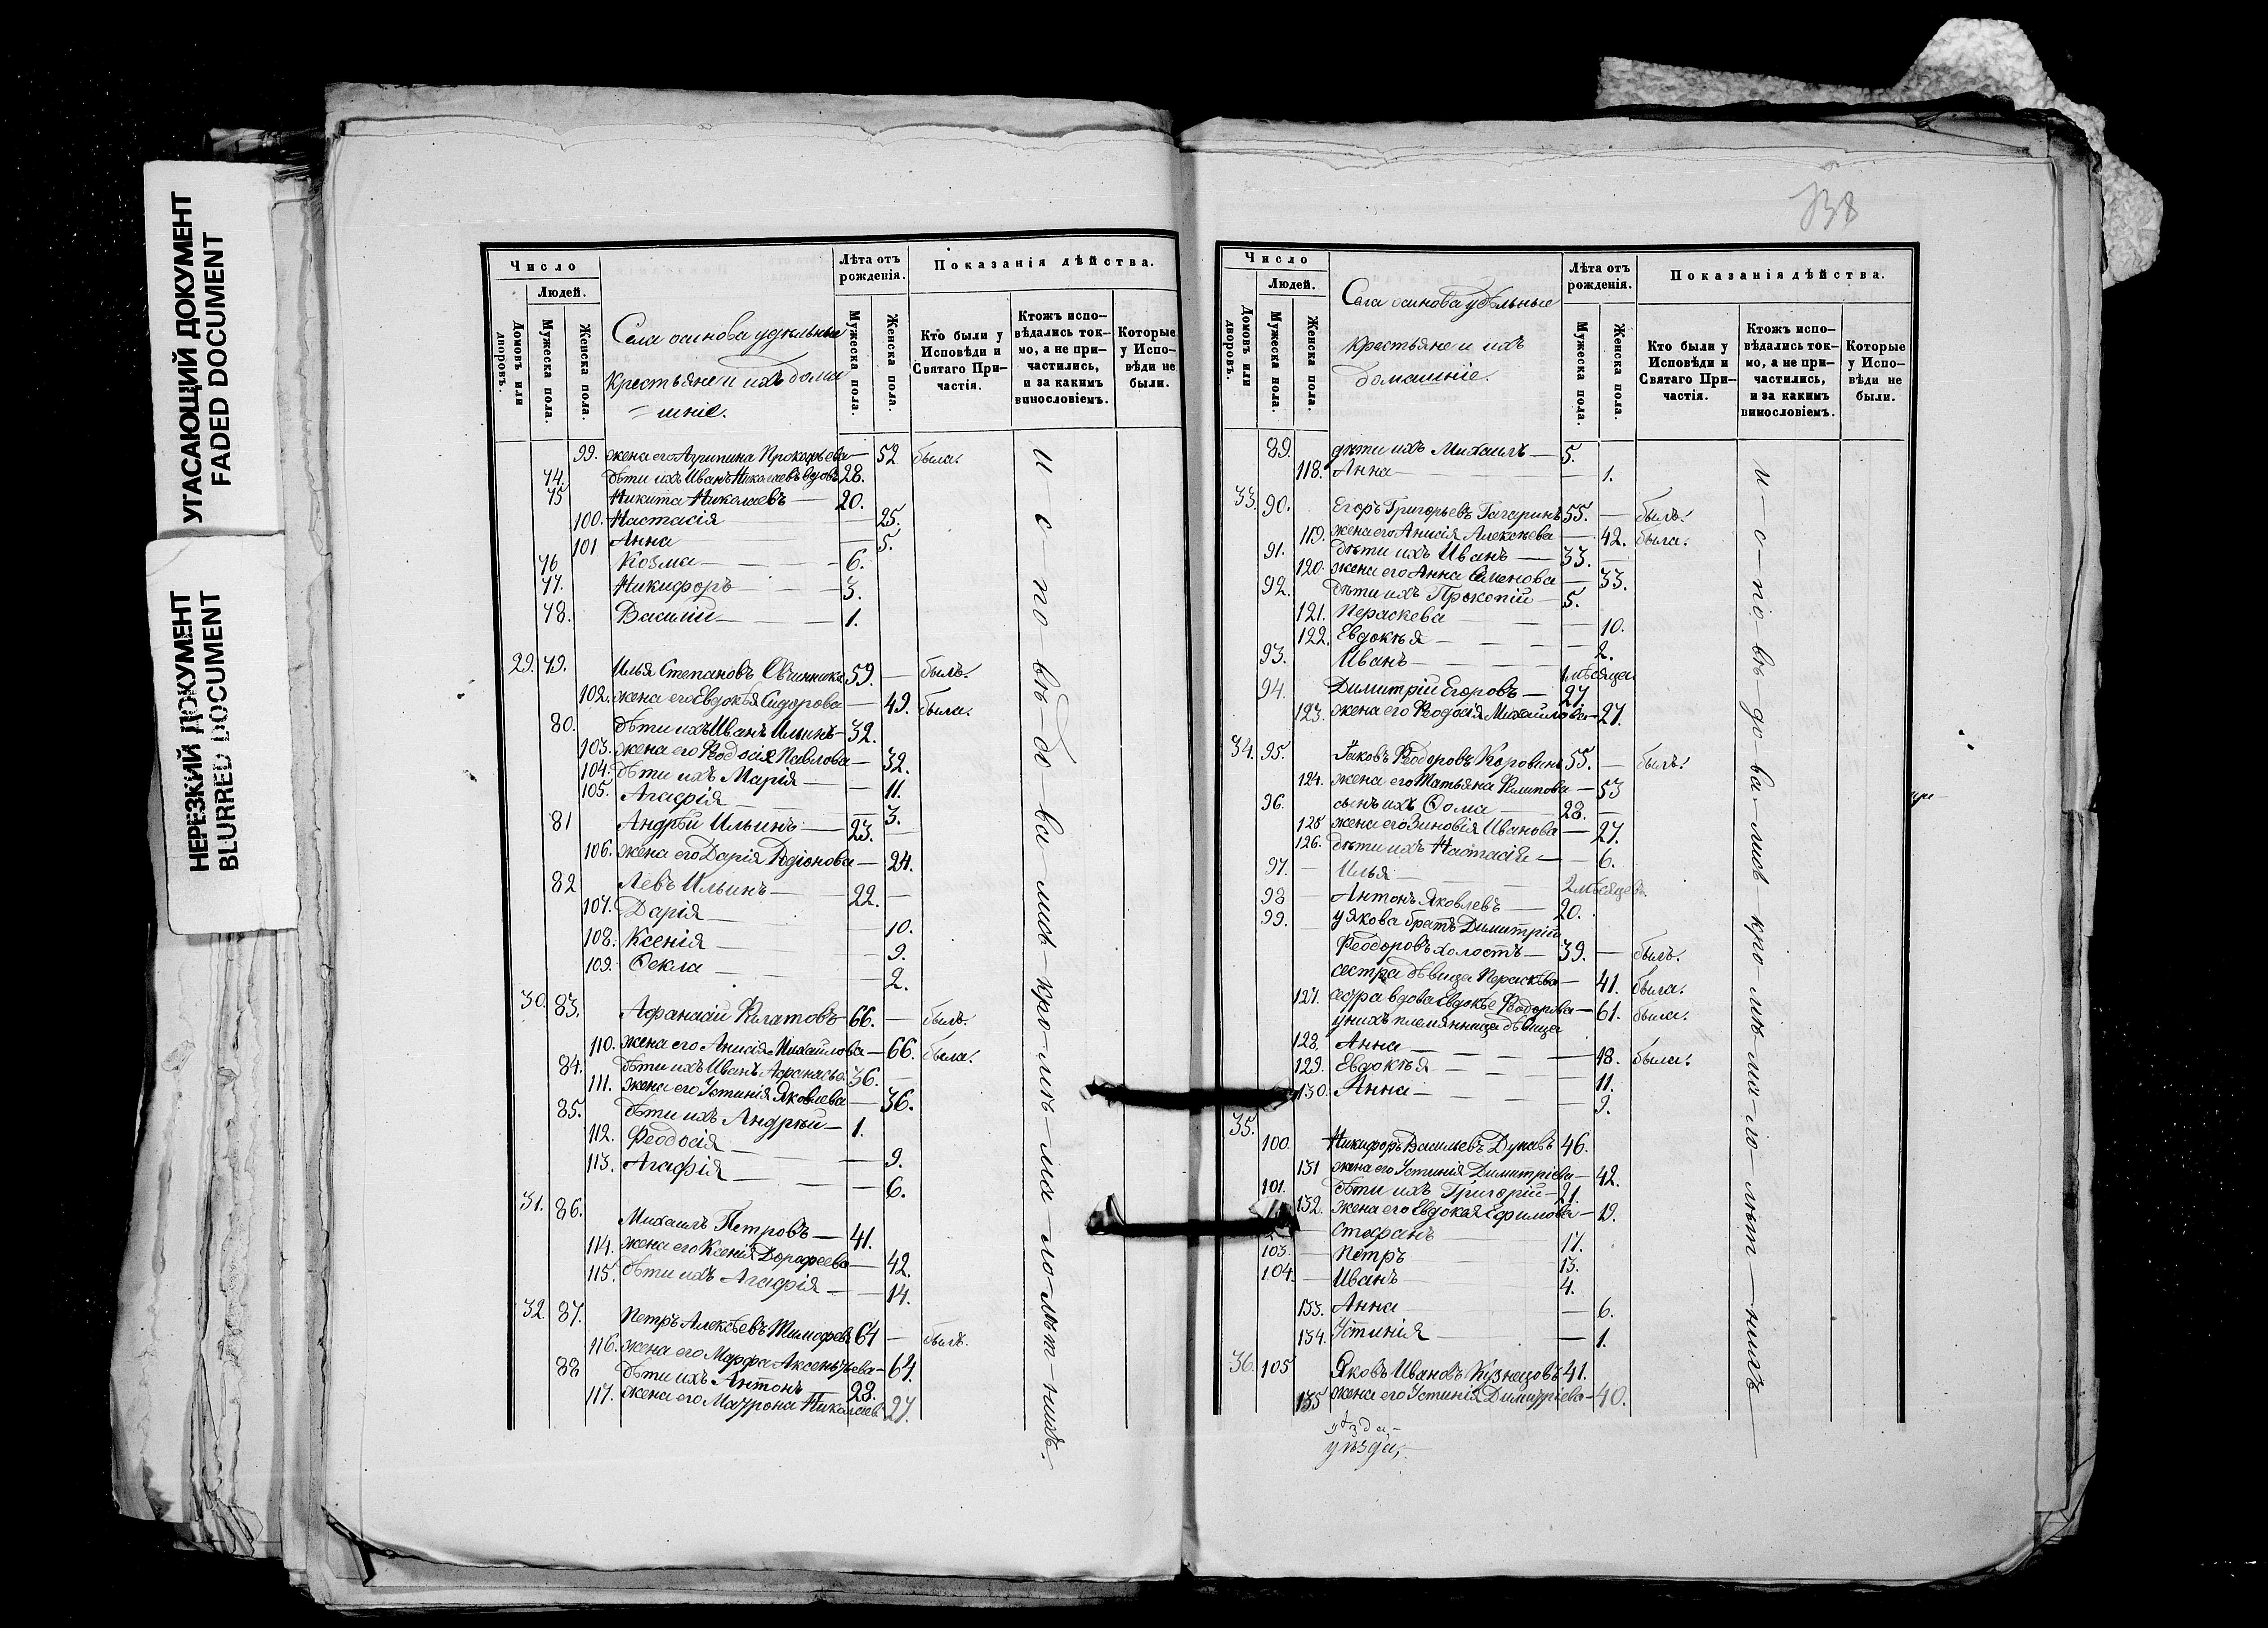 УГАСАЮЩИЙ ДОКУМЕНТ
FADED DOCUMENT
НЕРЕЗКИЙ ДОКУМЕНТ
BLURRED DOCUMENT
Число
Людей.
Домовъ или дворовъ.
Мужеска пола.
Женска пола.
Села осинова удѣльные
крестьяне и ихъ дома
=шніе.
Лѣта отъ рожденія.
Мужеска пола.
Женска пола.
Показанія дѣйства.
Кто были у Исповѣди и Святаго При-частія.
Ктожъ испо-вѣдались ток-мо, а не при-частились, и за какимъ винословіемъ.
Которые у Испо-вѣди не были.
99. жена его Агрипина Прокофьева — 52 была.
74. дѣти ихъ Иванъ Николаевъ вдовъ 28.
75 Никита Николаевъ — 20.
100. Настасія — 25.
101 Анна — 5.
76 Козма — 6.
77. Никифоръ — 3.
78. Василій — 1.
29. 79. Илья Степановъ Овчинников 59. — былъ.
102. жена его Евдокѣя Сидорова — 49. была.
80. дѣти ихъ Иванъ Ильинъ — 32.
103. жена его Ѳеодосія Павлова — 32.
104. дѣти ихъ Марія — 11.
105. Агафія — 3.
81 Андрѣй Ильинъ — 23. —
106. жена его Дарія Родіонова — 24.
82 Левъ Ильинъ — 22. —
107. Дарія — 10.
108. Ксенія — 9.
109. Ѳекла — 2.
30. 83. Афанасій Филатовъ 66. — былъ.
110. жена его Анисія Михайлова — 66. была.
84. дѣти ихъ Иванъ Афанасьев 36. —
111. жена его Устинія Яковлева — 36.
85. дѣти ихъ Андрѣй — 1.
112. Феодосія — 9.
113. Агафія — 6.
31. 86. Михаилъ Петровъ — 41.
114. жена его Ксенія Дорофеева — 42.
115. дѣти ихъ Агафія — 14.
32. 87. Петръ Алексѣевъ Тимофеев 64 — былъ.
116. жена его Марфа Аксентьева — 64.
88 дѣти ихъ Антонъ — 28.
117. жена его Матрона Николаев 27.
и с по вѣ до ва лись кро мѣ ма ло лѣт нихъ.
138
Число
Людей.
Домовъ или дворовъ.
Мужеска пола.
Женска пола.
Села осинова удѣльные
крестьяне и ихъ
домашніе.
Лѣта отъ рожденія.
Мужеска пола.
Женска пола.
Показанія дѣйства.
Кто были у Исповѣди и Святаго При-частія.
Ктожъ испо-вѣдались ток-мо, а не при-частились, и за какимъ винословіемъ.
Которые у Испо-вѣди не были.
89. дѣти ихъ Михаилъ — 5.
118. Анна — 1.
33. 90. Егоръ Григорьевъ Гагаринъ 55. — былъ.
119. жена его Анисія Алексѣева — 42. была.
91. дѣти ихъ Иванъ — 33. —
120. жена его Анна Семенова — 33.
92. дѣти ихъ Прокопій — 5.
121. Пераскева — 10.
122. Евдокѣя — 2.
93. Иванъ — 1 мѣсяца
94. Димитрій Егоровъ — 27.
123. жена его Ѳеодосія Михайлова — 27.
34. 95. Іаковъ Ѳеодоровъ Коровинъ 55. — былъ.
124. жена его Татьяна Филипова — 53
96. сынъ ихъ Ѳома — 28. —
125 жена его Зиновія Иванова — 27.
126. дѣти ихъ Настасія — 6.
97. — Илья — 2 мѣсяцев
98 — Антонъ Яковлевъ — 20.
99. у Якова братъ Димитрій
Ѳеодоровъ холостъ — 39. — былъ.
сестра дѣвица Пераскева — 41. была.
127. сестра вдова Евдокѣе Ѳеодорова — 61. была.
у нихъ племянница дѣвица
128. Анна — 18. была.
129. Евдокѣя — 11.
130. Анна — 9.
35. 100. Никифоръ Василевъ Дунаевъ 46.
131 жена его Устинія Димитріева — 42.
101. дѣти ихъ Григорій — 21.
132. жена его Евдокея Ефимова — 19.
Стефанъ 17.
103. — Петръ — 13.
104. — Иванъ — 4.
133. Анна — 6.
134. Устинія — 1.
36. 105 Яковъ Ивановъ Кузнецовъ 41.
135 жена его Устинія Димитріева — 40.
и с по вѣ до ва лись кро мѣ ма ло лѣт нихъ
уѣзда,
уѣзда,